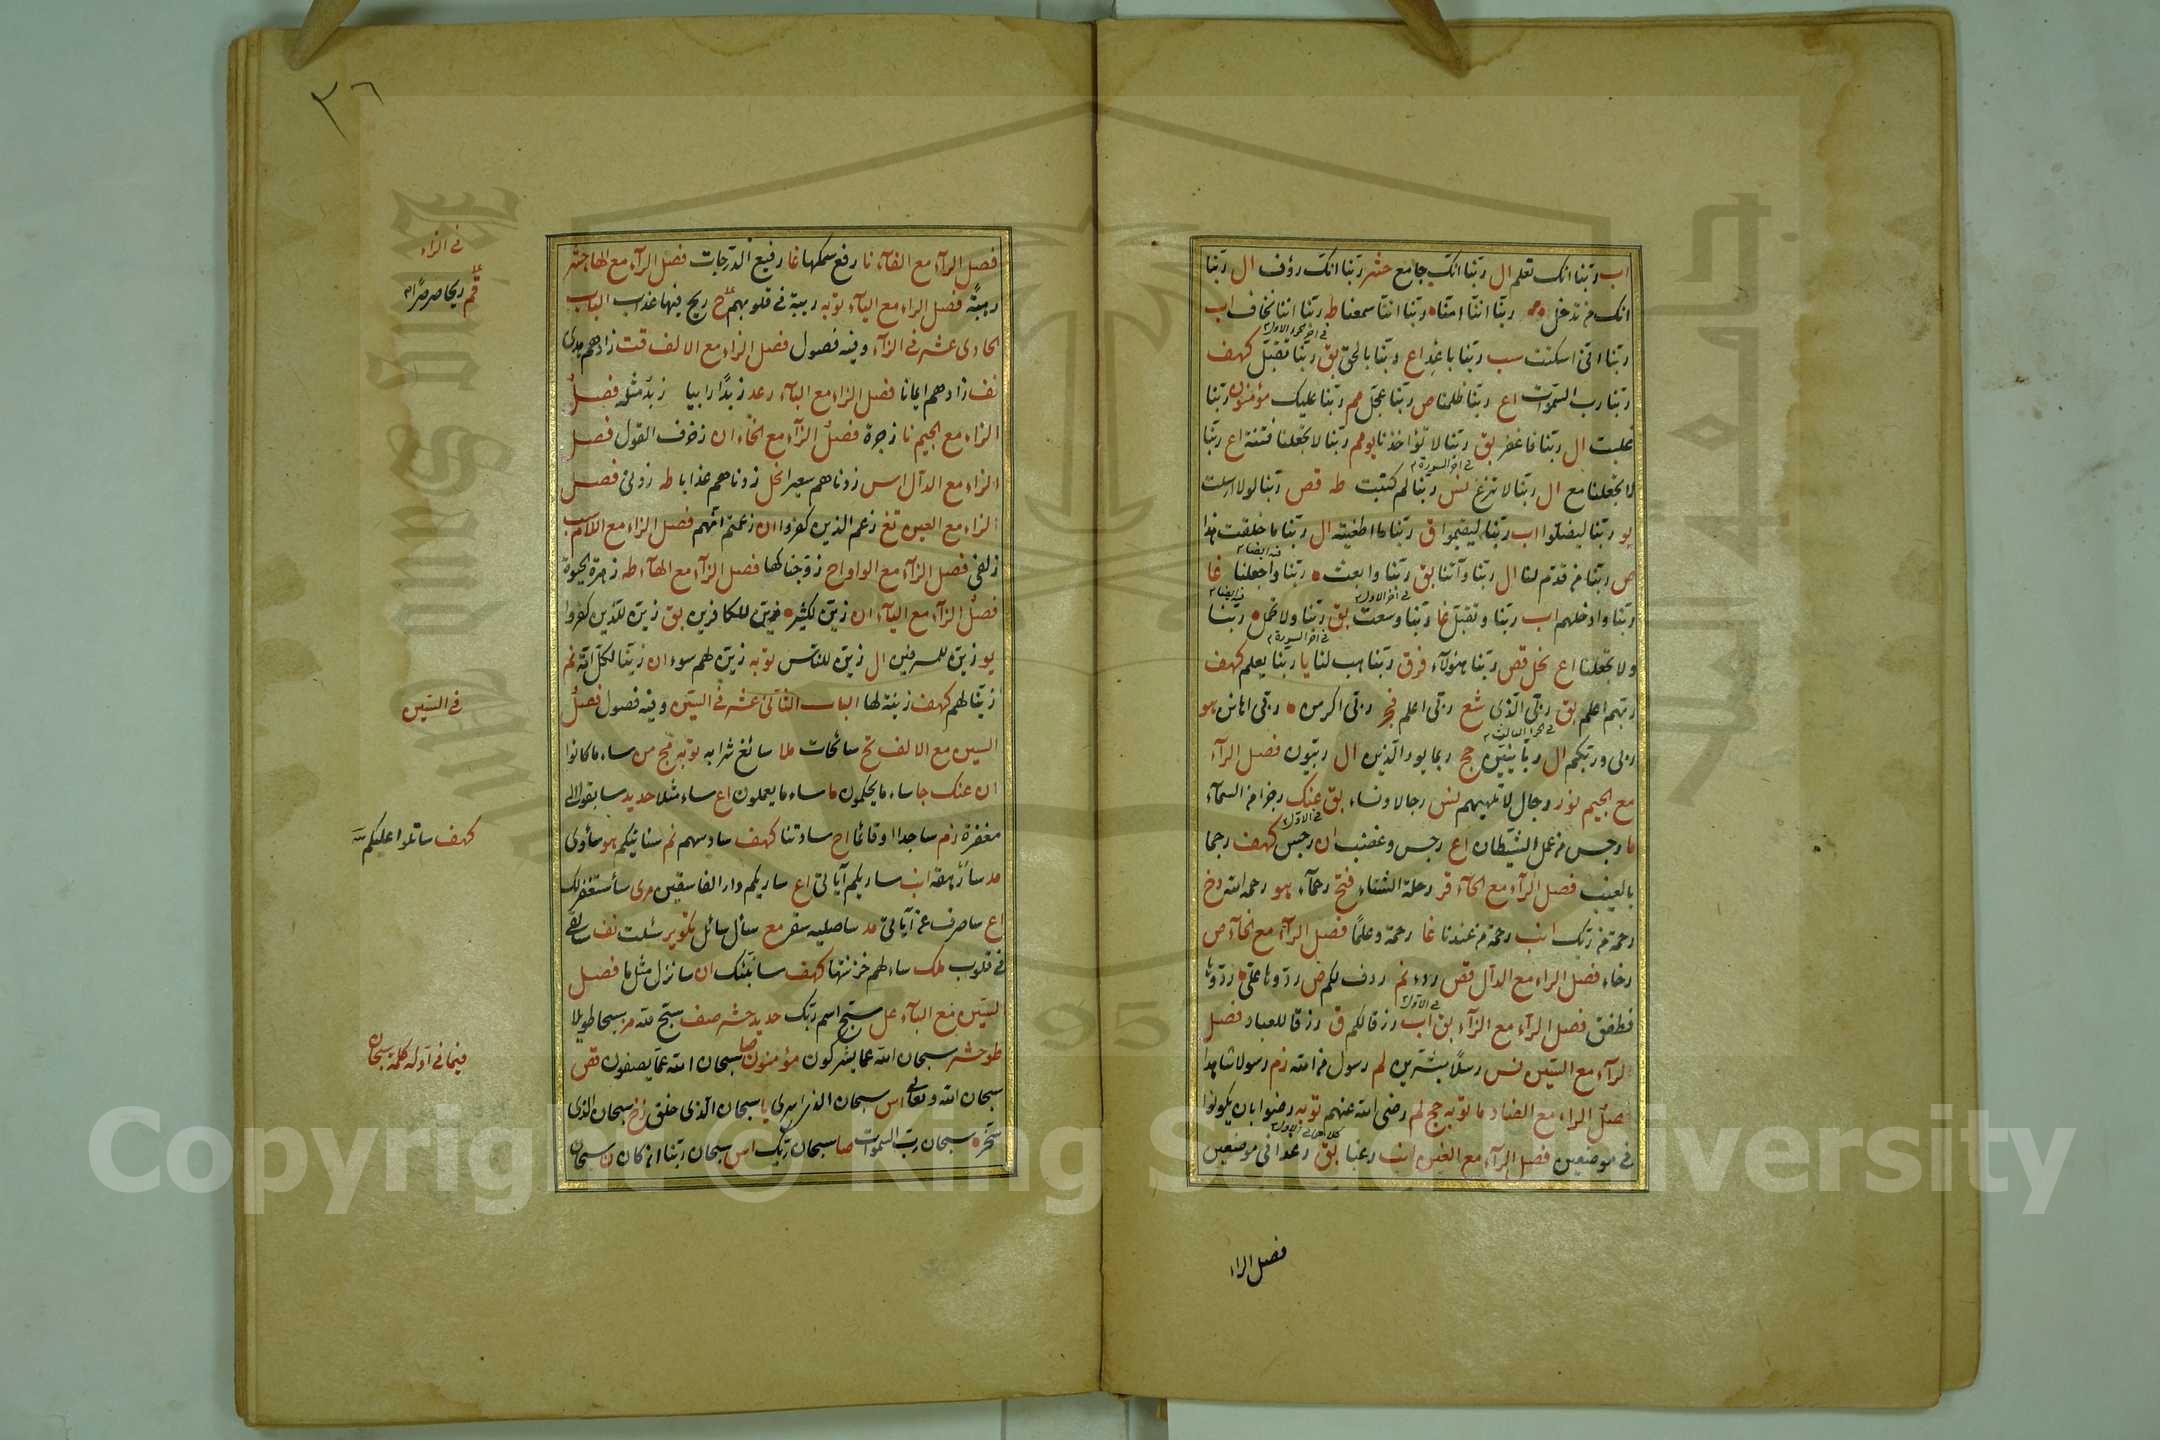 اب ربنا انك تعلم ال ربنا انك جامع حشر ربنا انك رؤف ال ربنا
انك من تدخل ربنا اننا امنا ربنا اننا سمعنا طه ربنا اننا نخاف اب
ربنا انى اسكنت سب ربنا باعد اع ربنا بالحق بق ربنا تقبل كهف
ربنا رب السموات اع ربنا ظلمنا ص ربنا عجل مم ربنا عليك مؤمنون ربنا
غلبت ال ربنا فاغفر بق ربنا لا تؤاخذنا يو مم ربنا لا تجعلنا فتنة اع ربنا
لا تجعلنا مع ال ربنا لا تزغ نس ربنا لم كتبت طه قص ربنا لولا ارسلت
يو ربنا ليضلوا اب ربنا ليقيموا ق ربنا ما اطغيته ال ربنا ما خلقت هذا
ص ربنا من قدم لنا ال ربنا وآتنا بق ربنا وابعث ربنا واجعلنا غا
ربنا وادخلهم اب ربنا وتقبل غا ربنا وسعت بق ربنا ولا تحمل ربنا
ولا تجعلنا اع نحل قص ربنا هؤلاء فرق ربنا هب لنا يا ربنا يعلم كهف
ربهم اعلم بق ربى الذى شع ربى اعلم فجر ربى اكرمن ربى اهانن هو
ربى وربكم ال ربانيين حج ربما يود الذين ال ربيون فصل الرآء
مع الجيم نور رجال لا تلهيهم نس رجالا ونساء بق عنك رجزا من السماء
ما رجس من عمل الشيطان اع رجس وغضب ان رجس كهف رجما
بالغيب فصل الرآء مع الحآء قر رحلة الشتاء فتح رحمآء هو رحمه الله دخ
رحمة من ربك انب رحمة من عندنا غا رحمة وعلما فصل الرآء مع الخآء ص
رخاء فصل الراء مع الدال قص ردء نم ردف لكم ص ردوها على ردوها
فطفق فصل الرآء مع الزآء بق اب رزقا لكم ق رزقا للعباد فصل
الرآء مع السين نس رسلا مبشرين لم رسول من الله زم رسولا شاهدا
فصل الراء مع الضاد ما توبه حج لم رضى الله عنهم توبه رضوا بان يكونوا
فى موضعين فصل الرآء مع الغين انب رغبا بق رغدا فى موضعين
فصل الراء
٣٦
فصل الرآء مع الفآء نا رفع سمكها غا رفيع الدرجات فصل الرآء مع الهاء حشر
رهبة فصل الراء مع اليآء توبه ريبة فى قلوبهم حح ريح فيها عذاب الباب
الحادى عشر فى الزآء وفيه فصول فصل الزاء مع الالف قت زادهم هدى
نف زادهم ايمانا فصل الزاء مع البآء رعد زبدا رابيا زبد مثله فصل
الزاء مع الجيم نا زجرة فصل الزآء مع الخاء ان زخرف القول فصل
الزاء مع الدال اس زدناهم سعيرا نحل زدناهم عذابا طه زدنى فصل
الزاء مع العين تغ زعم الذين كفروا ان زعمتم انهم فصل الزاء مع اللام سب
زلفى فصل الزآء مع الواو اح زوجناكها فصل الزآء مع الهآء طه زهرة الحيوة
فصل الزآء مع اليآء ان زين لكثير زين للكافرين بق زين للذين كفروا
يو زين للمسرفين ال زين للناس توبه زين لهم سوء ان زينا لكل امة نم
زينا لهم كهف زينة لها الباب الثانى عشر فى السين وفيه فصول فصل
السين مع الالف تح سائحات ملا سائغ شرابه توبه مج من ساء ما كانوا
ان عنك جا ساء ما يحكمون ما ساء ما يعملون اع ساء مثلا حديد سابقوا الى
مغفرة زم ساجدا وقائما اح سادتنا كهف سادسهم نم سناتيكم هو سآوى
مد سارهقه انب ساريكم آياتى اع ساريكم دار الفاسقين مرى سأستغفر لك
اع ساصرف عن آياتى مد ساصليه سقر مع سأل سائل تكوير سئلت نف سالقى
فى قلوب ملك سالهم خزنتها كهف سانبئك ان سانزل مثل ما فصل
السين مع البآء عل سبح اسم ربك حديد حشر صف سبح لله مز سبحا طويلا
طو حشر سبحان الله عما يشركون مؤمنون صا سبحان الله عما يصفون قص
سبحان الله وتعالى اس سبحان الذى اسرى يا سبحان الذى خلق زخ سبحان الذى
سخر سبحان رب السموات صا سبحان ربك اس سبحان ربنا ان كان ن سبحان
فى الزاء
قمر ريحا صرصرا
فى السين
كهف ساتلوا عليكم
فيما فى اوله كلمة سبحان
Copyright © King Saud University